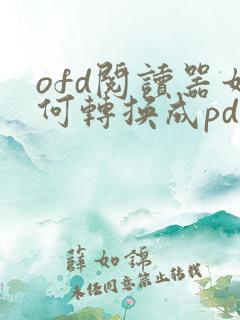 ofd閱讀器如
何轉換成pd
薛如錦
未经同意禁止转载